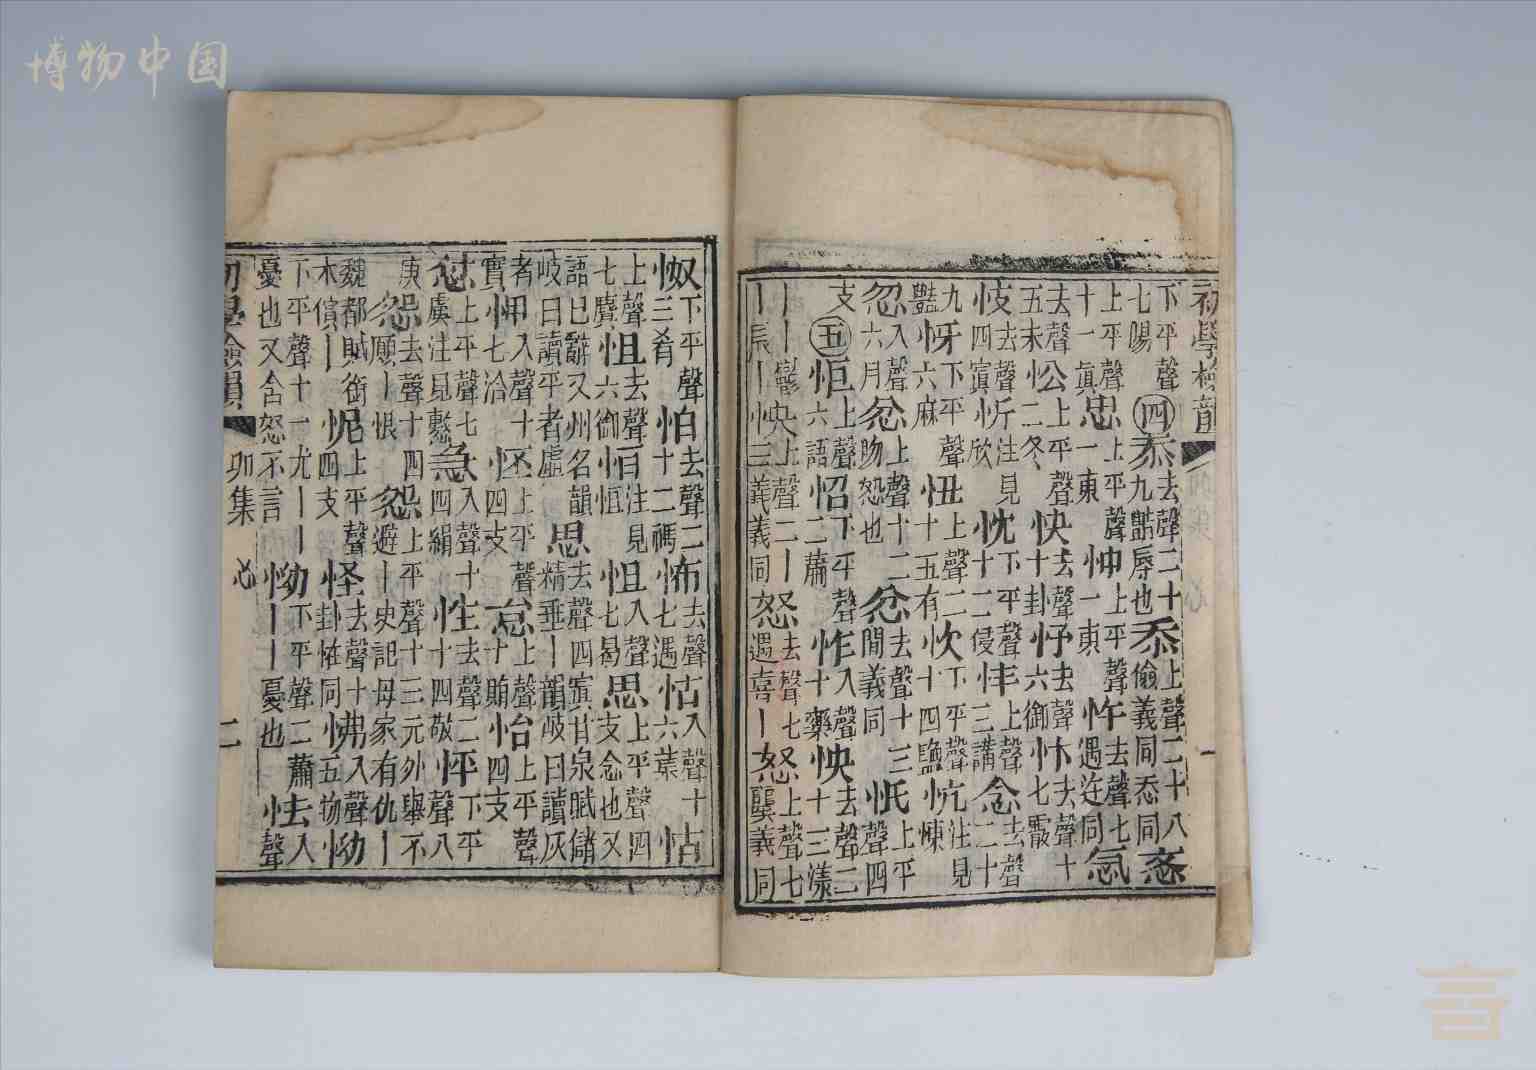 博物中国
初學檢韻
下平聲七陽㊃忝去聲二十九豔辱也忝上聲二十八儉義同忝同忞
上平聲十一真忠一東忡上平聲一東忤去聲七遇迕同愾
去聲五未忪上平聲二冬快去聲十卦忬去聲六御忭去聲十七霰
忮去聲四寘忻注見欣忱下平聲十二侵忹上聲三講念去聲二十
九豔忬下平聲六麻忸上聲二十五有忺下平聲十四鹽忼注見慷
忽入聲六月忿上聲十二吻怨也忿去聲十三問義同怟上平聲四
支㊄怇上聲六語怊下平聲二蕭怍入聲十藥怏去聲二十三漾
丨丨鬱怏上聲二丨怒去聲七遇喜丨怒上聲七
丨辰丨怏三義義同龔義同
怓下平聲三肴怕去聲二十二禡怖去聲七遇怗入聲十六葉怙
上聲七麌怚去聲六御怛注見恒怛入聲七曷思上平聲四支念也又
語已辭又州名韻思去聲四寘甘泉賦儲精垂丨韻岐曰讀灰
岐曰讀平者虛
者怬入聲十丕上平聲四支怠上聲十賄怡上平聲四支
寘怬七洽
怤上平聲七虞注見憨急入聲十四緝性去聲二十四敬怦下平聲八
庚怨去聲十四願丨恨怨上平聲十三元外舉不避丨史記母家有仇丨
魏都賦銜木償丨怩上平聲四支怪去聲十卦恠同怫入聲五物怮
下平聲十一尤丨丨怮下平聲二蕭怯入聲
憂也又含怒不言怮丨丨憂也
初學檢韻
卯集
心
二